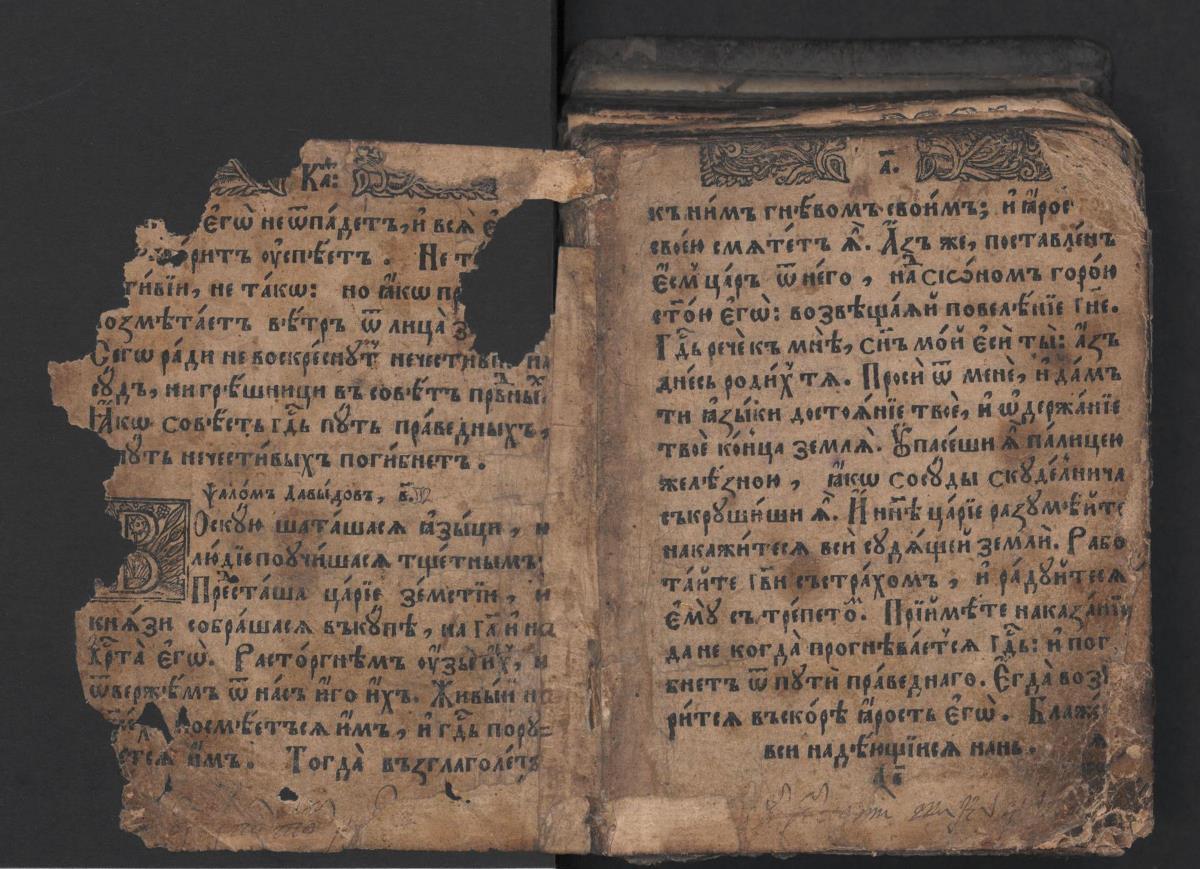 Каѳ:
Є҆гѡ̀ не ѿпа́детъ, и҆ всѧ̀
ри́тъ ᲂу҆спѣ́етъ. Не
ти́вїи, не та́кѡ: но ꙗ҆́кѡ
возмѣта́етъ вѣ́тръ ѿ лица̀
Сегѡ ра́ди не воскре́снꙋтъ нечести́вїи на
сꙋ́дъ, ни грѣ́шници въ совѣ́тъ пра́вⷣныⷯ.
Ꙗ҆́кѡ совѣ́сть гдⷭ҇ь пꙋ́ть пра́ведныхъ,
пꙋ́ть нечести́выхъ поги́бнетъ.
Ѱало́мъ Давы́довъ, в҃.
Воскꙋ́ю шата́шасѧ ꙗ҆зы́цы, и
лю́дїе поꙋчи́шасѧ тще́тнымъ
Преⷣста́ша ца́рїе зе́мстїи, и
кнѧ́зи собра́шасѧ въкꙋ́пѣ, на гдⷭ҇а и҆ на
хрⷭ҇та̀ є҆гѡ̀. Расто́ргнѣмъ ᲂу҆́зы и҆́хъ, и
ѿве́ржѣмъ ѿ на́съ и҆́го и҆́хъ. Живы́й на
посмѣе́тъсѧ и҆̀мъ, и҆ гдⷭ҇ь порꙋ-
є́тсѧ и҆̀мъ. Тогда̀ възглаго́летъ
а҃.
къ ни́мъ гнѣ́вомъ свои́мъ; и҆ ꙗ҆́рос
свое́ю смѧте́тъ ѧ҆̀. А҆́зъ же, поста́вленъ
є҆́смь ца́рь ѿ не́го, наⷣ сїѡ́номъ горо́ю
ст҃о́ю є҆гѡ̀: возвѣща́ѧй повелѣ́нїе гдⷭ҇не.
Гдⷭ҇ь речѐ къ мнѣ̀, сн҃ъ мо́й є҆сѝ ты̀: а҆́зъ
дне́сь роди́хъ тѧ. Просѝ ѿ менѐ, и҆ да́мъ
ти ꙗ҆зы́ки достоѧ́нїе твоѐ, и҆ ѡ҆держа́нїе
твоѐ ко́нца землѧ̀. Оу҆пасе́ши ѧ҆̀ па́лицею
желѣ́зною, ꙗ҆́кѡ сосꙋ́ды скꙋде́лнича
съкрꙋши́ши ѧ҆̀. И҆ нн҃ѣ ца́рїе разꙋмѣ́йте
накажи́тесѧ всѝ сꙋдѧ́щей землѝ. Рабо
та́йте гдⷭ҇ви съ стра́хомъ, и҆ ра́дꙋйтесѧ
є҆мꙋ̀ съ тре́петоⷨ. Прїи́мѣте наказа́нїе
да не когда̀ прогнѣ́ваетсѧ гдⷭ҇ь: и҆ пог
бнетъ ѿ пꙋтѝ пра́веднаго. Є҆гда̀ воз
ри́тсѧ въско́рѣ ꙗ҆́рость є҆гѡ̀. Блаже
всѝ надѣ́ющїисѧ нань.